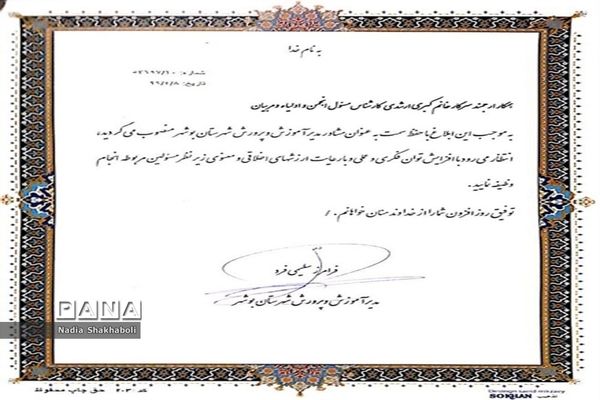 به نام خدا
شماره: ۰۲۶۹۷/۱۰
تاریخ: ۹۹/۲/۸
همکار ارجمند سرکار خانم کبری ارشدی کارشناس مسئول انجمن و اولیاء و مربیان
به موجب این ابلاغ با حفظ سمت به عنوان مشاور مدیر آموزش و پرورش شهرستان بوشهر منصوب می گردید،
انتظار می رود با افزایش توان فکری و عملی و با رعایت ارزشهای اخلاقی و معنوی زیر نظر مسئولین مربوطه انجام
وظیفه نمایید.
توفیق روز افزون شما را از خداوند منان خواهانم . /
فرامرز سلیمی فرد
مدیر آموزش و پرورش شهرستان بوشهر
PANA
Nadia Shakhaboli
کد ۲۰۳ حق چاپ محفوظ
SOKHAN